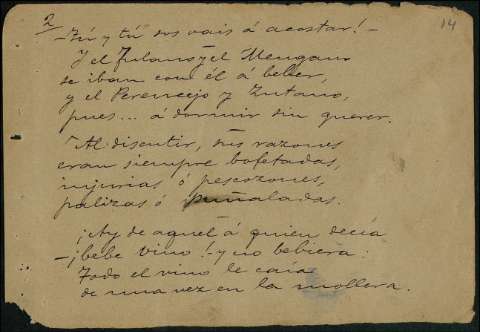 2
14
- Tú y tú sos vais á acostar! -
Y el Fulano y el Mengano
se iban con él á beber,
y el Perencejo y Zutano,
pues... á dormir sin querer.
Al discutir, sus razones
eran siempre bofetadas,
injurias ó pescozones,
palizas ó puñaladas.
¡Ay de aquel á quien decía
- ¡bebe vino! - y no bebiera:
Todo el vino le caía
de una vez en la mollera.